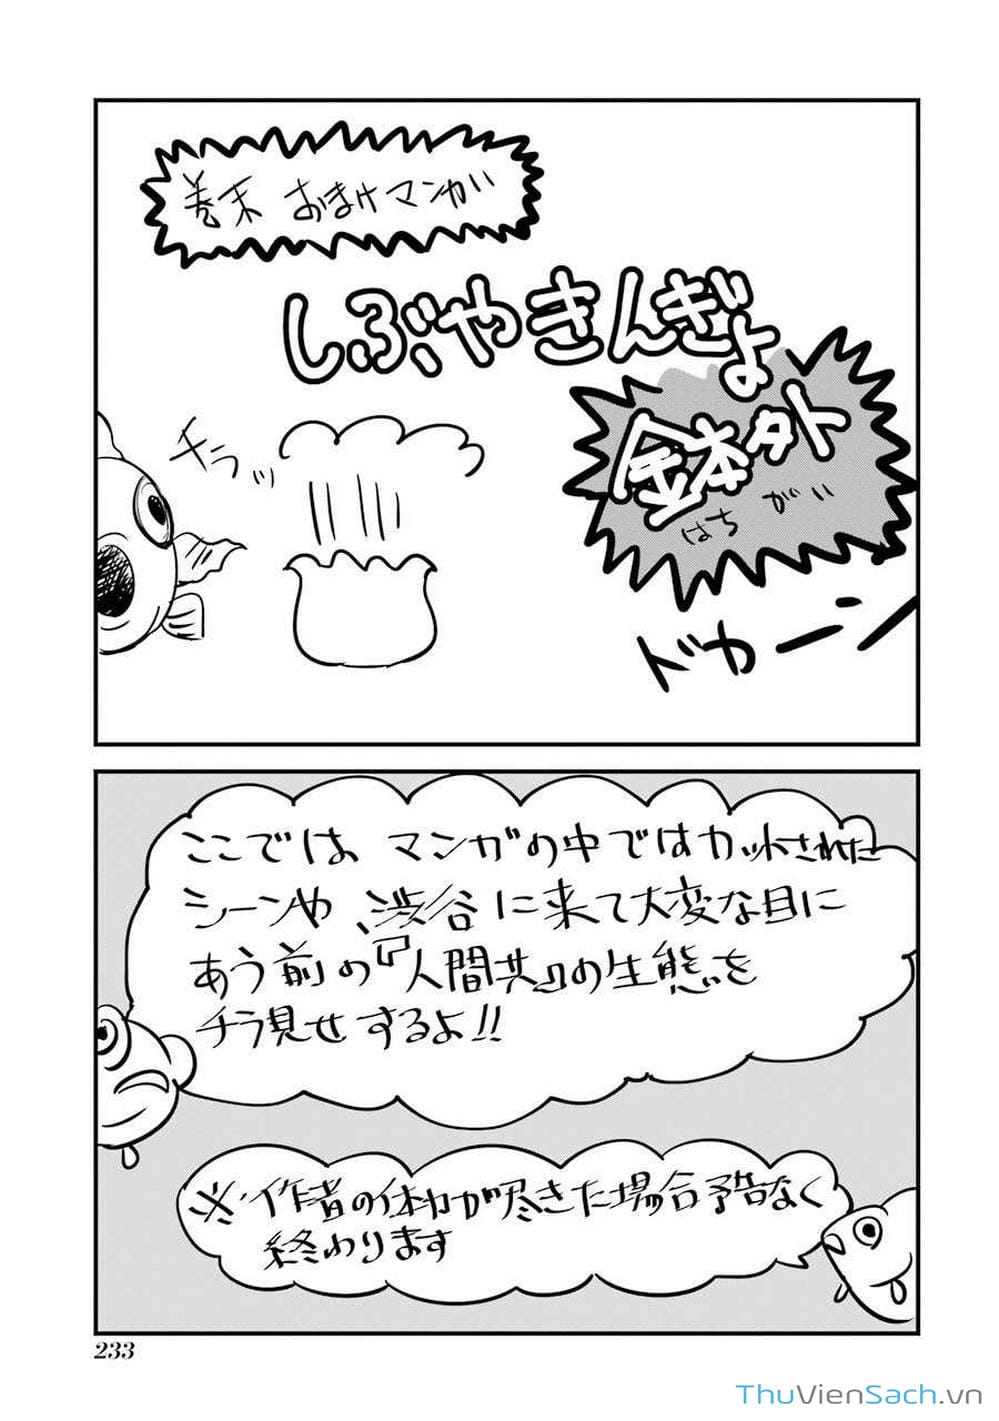 巻末 おまけマンガ
しぶやきんぎょ
鉢外
はちがい
チラッ
ドカーン
ここでは、マンガの中ではカットされた
シーンや、渋谷に来て大変な目に
あう前の『人間共』の生態を
チラ見せするよ!!
※作者の体力が尽きた場合予告なく
終わります
233
ThuVienSach.vn